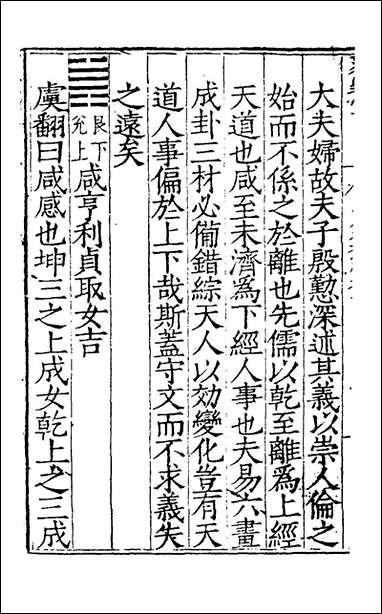 大夫婦故夫子殷懃深述其義以崇人倫之
始而不係之於離也先儒以乾至離爲上經
天道也咸至未濟爲下經人事也夫易六畫
成卦三材必備錯綜天人以効變化豈有天
道人事偏於上下哉斯蓋守文而不求義失
之遠矣
艮下
兌上
咸亨利貞取女吉
虞翻曰咸感也坤三之上成女乾上之三成